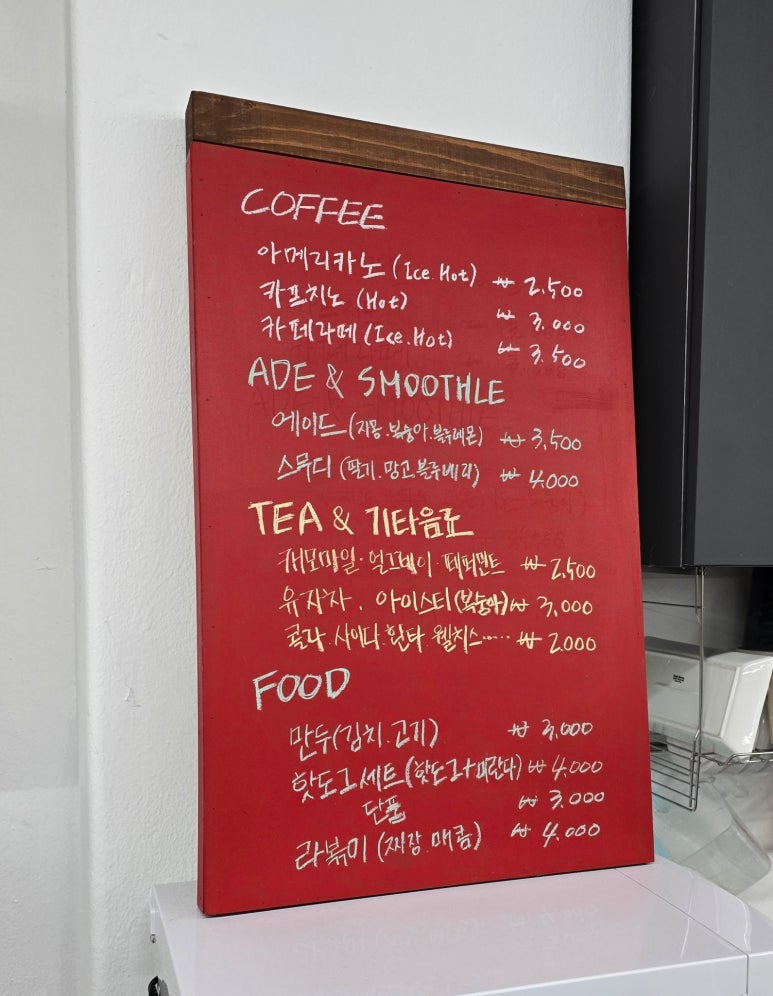 COFFEE
아메리카노 (Ice.Hot) ₩ 2,500
카프치노 (Hot) ₩ 3,000
카페라떼 (Ice.Hot) ₩ 3,500
ADE & SMOOTHLE
에이드 (자몽.복숭아.블루레몬) ₩ 3,500
스무디 (딸기.망고.블루베리) ₩ 4,000
TEA & 기타음료
캐모마일·얼그레이·페퍼민트 ₩ 2,500
유자차. 아이스티(복숭아) ₩ 3,000
콜라 사이다 환타 웰치스····· ₩ 2,000
FOOD
만두(김치.고기) ₩ 3,000
핫도그세트(핫도그+미란다) ₩ 4,000
단품 ₩ 3,000
라볶이 (짜장.매콤) ₩ 4,000